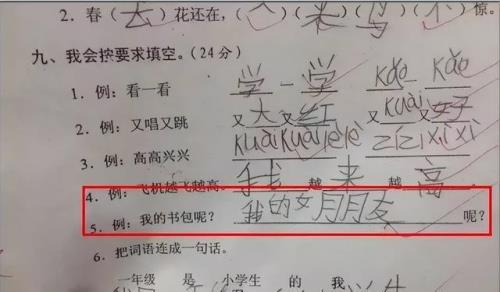 2. 春（去）花还在，（人）（来）（鸟）（不）惊。
九、我会按要求填空。（24分）
1. 例：看一看 学一学 kǎo kǎo
2. 例：又唱又跳 又大又红 又 kuài 又
3. 例：高高兴兴 kuài kuài lè lè zǐ zǐ xì xì
4. 例：飞机越飞越高。 我 越 来 越 高
5. 例：我的书包呢？ 我的女月月友 呢？
6. 把词语连成一句话。
一年级 是 小学生 的 我